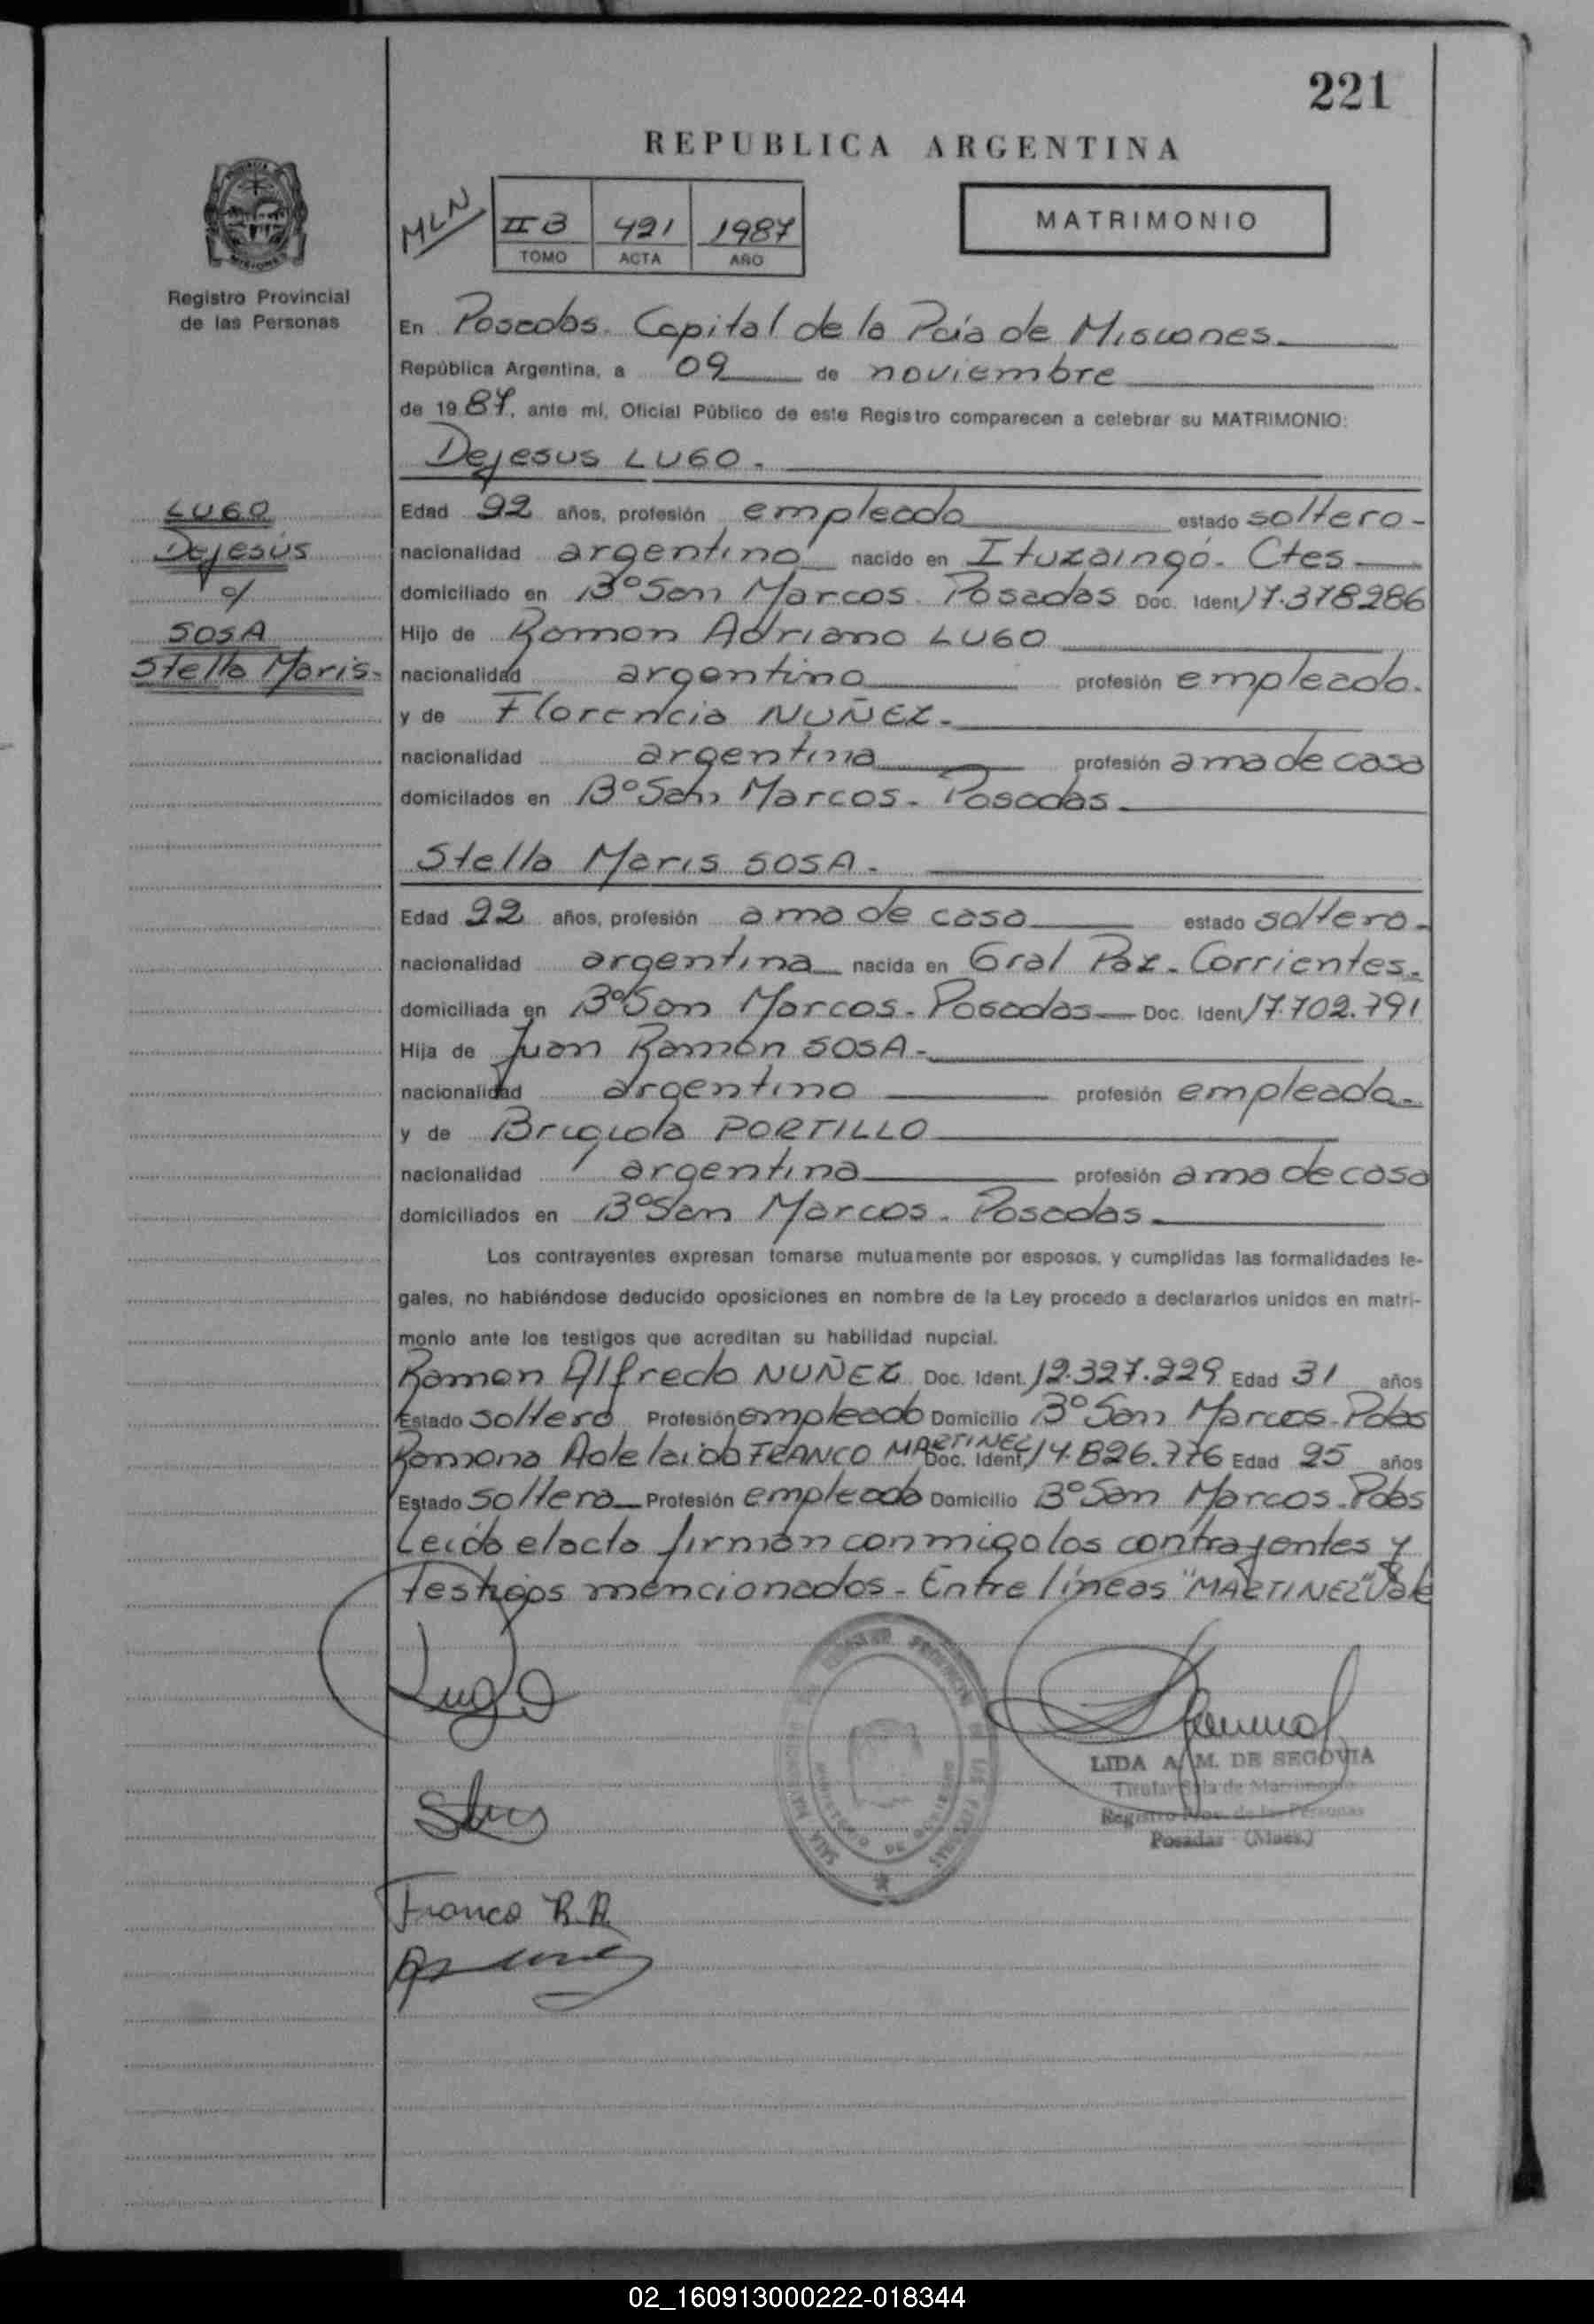 221
REPUBLICA ARGENTINA
MLN
II B 421 1987
TOMO ACTA AÑO
MATRIMONIO
Registro Provincial
de las Personas
En Posadas. Capital de la Pcia de Misiones.
República Argentina, a 09 de noviembre
de 1987, ante mí, Oficial Público de este Registro comparecen a celebrar su MATRIMONIO:
Dejesus LUGO.
LUGO
Dejesús
c/
SOSA
Stella Maris.
Edad 22 años, profesión empleado estado soltero-
nacionalidad argentino nacido en Ituzaingó. Ctes.
domiciliado en B° San Marcos. Posadas Doc. Ident 17.378286
Hijo de Ramon Adriano LUGO
nacionalidad argentino profesión empleado.
y de Florencia NUÑEZ.
nacionalidad argentina profesión ama de casa
domiciliados en B° San Marcos. Posadas.
Stella Maris SOSA.
Edad 22 años, profesión ama de casa estado soltera-
nacionalidad argentina nacida en Gral Paz. Corrientes.
domiciliada en B° San Marcos. Posadas Doc. Ident 17.702.791
Hija de Juan Ramón SOSA.
nacionalidad argentino profesión empleado.
y de Brigida PORTILLO
nacionalidad argentina profesión ama de casa
domiciliados en B° San Marcos. Posadas.
Los contrayentes expresan tomarse mutuamente por esposos, y cumplidas las formalidades le-
gales, no habiéndose deducido oposiciones en nombre de la Ley procedo a declararlos unidos en matri-
monio ante los testigos que acreditan su habilidad nupcial.
Ramon Alfredo NUÑEZ Doc. Ident. 12.327.229 Edad 31 años
Estado soltero Profesión empleado Domicilio B° San Marcos. Pdas
Ramona Adelaida FRANCO MARTINEZ Doc. Ident 14.826.776 Edad 25 años
Estado soltera Profesión empleada Domicilio B° San Marcos. Pdas
Leida el acta firman conmigo los contrayentes y
testigos mencionados. Entre líneas "MARTINEZ" Vale
Lugo
LIDA A. M. DE SEGOVIA
Titular Sala de Matrimonio
Registro Prov. de las Personas
Posadas (Mnes.)
Franco R.A.
02_160913000222-018344